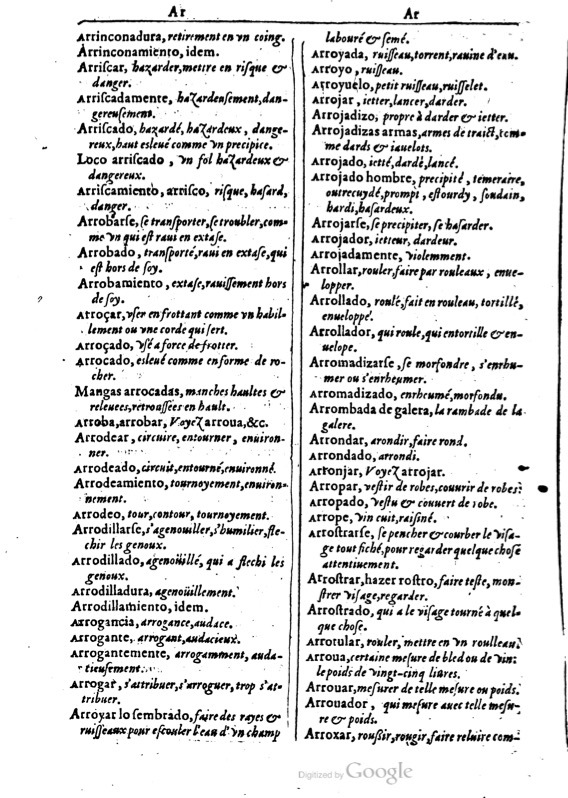 Ar
Arrinconadura, retirement en vn coing.
Arrinconamiento, idem.
Arriſcar, hazarder, mettre en riſque &
danger.
Arriſcadamente, hazardeuſement, dan-
gereuſement.
Arriſcado, hazardé, hazardeux, dange-
reux, haut esleué comme vn precipice.
Loco arriſcado, vn fol hazardeux &
dangereux.
Arriſcamiento, arriſco, riſque, haſard,
danger.
Arrobarſe, ſe tranſporter, ſe troubler, com-
me vn qui eſt raui en extaſe.
Arrobado, tranſporté, raui en extaſe, qui
eſt hors de ſoy.
Arrobamiento, extaſe, rauiſſement hors
de ſoy.
Arroçar, vſer en frottant comme vn habil-
lement ou vne corde qui ſert.
Arroçado, vſé a force de frotter.
Arrocado, esleué comme en forme de ro-
cher.
Mangas arrocadas, manches haultes &
releuees, retrouſſees en hault.
Arroba, arrobar, Voyez arroua, &c.
Arrodear, circuire, entourner, enuiron-
ner.
Arrodeado, circuit, entourné, enuironné.
Arrodeamiento, tournoyement, enuiron-
nement.
Arrodeo, tour, contour, tournoyement.
Arrodillarſe, s'agenouiller, s'humilier, fle-
chir les genoux.
Arrodillado, agenoüillé, qui a flechi les
genoux.
Arrodilladura, agenoüillement.
Arrodillamiento, idem.
Arrogancia, arrogance, audace.
Arrogante, arrogant, audacieux.
Arrogantemente, arrogamment, auda-
tieuſement.
Arrogar, s'attribuer, s'arroguer, trop s'at-
tribuer.
Arroyar lo ſembrado, faire des rayes &
ruiſſeaux pour eſcouler l'eau d'vn champ
Ar
labouré & ſemé.
Arroyada, ruiſſeau, torrent, rauine d'eau.
Arroyo, ruiſſeau.
Arroyuelo, petit ruiſſeau, ruiſſelet.
Arrojar, ietter, lancer, darder.
Arrojadizo, propre à darder & ietter.
Arrojadizas armas, armes de traict, com-
me dards & iauelots.
Arrojado, ietté, dardé, lancé.
Arrojado hombre, precipité, temeraire,
outrecuydé, prompt, eſtourdy, ſoudain,
hardi, haſardeux.
Arrojarſe, ſe precipiter, ſe haſarder.
Arrojador, ietteur, dardeur.
Arrojadamente, violemment.
Arrollar, rouler, faire par rouleaux, enue-
lopper.
Arrollado, roulé, fait en rouleau, tortillé,
enueloppé.
Arrollador, qui roule, qui entortille & en-
uelope.
Arromadizarſe, ſe morfondre, s'enrhu-
mer ou s'enrheumer.
Arromadizado, enrheumé, morfondu.
Arrombada de galera, la rambade de la
galere.
Arrondar, arondir, faire rond.
Arrondado, arrondi.
Arronjar, Voyez arrojar.
Arropar, veſtir de robes, couurir de robes.
Arropado, veſtu & couuert de robe.
Arrope, vin cuit, raiſiné.
Arroſtrarſe, ſe pencher & courber le viſa-
ge tout fiché, pour regarder quelque choſe
attentiuement.
Arroſtrar, hazer roſtro, faire teſte, mon-
ſtrer viſage, regarder.
Arroſtrado, qui a le viſage tourné à quel-
que choſe.
Arrotular, rouler, mettre en vn roulleau.
Arroua, certaine meſure de bled ou de vin:
le poids de vingt-cinq liures.
Arrouar, meſurer de telle meſure ou poids.
Arrouador, qui meſure auec telle meſu-
re & poids.
Arroxar, rouſſir, rougir, faire reluire com-
Digitized by Google